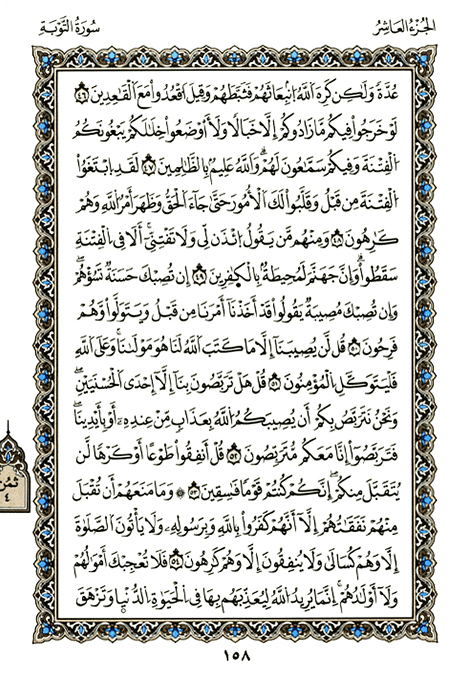 الجزء العاشر
سورة التوبة
عُدَّةً وَلَٰكِن كَرِهَ اللَّهُ انبِعَاثَهُمْ فَثَبَّطَهُمْ وَقِيلَ اقْعُدُوا مَعَ الْقَاعِدِينَ ٤٦
لَوْ خَرَجُوا فِيكُم مَّا زَادُوكُمْ إِلَّا خَبَالًا وَلَأَوْضَعُوا خِلَالَكُمْ يَبْغُونَكُمُ
الْفِتْنَةَ وَفِيكُمْ سَمَّاعُونَ لَهُمْ ۗ وَاللَّهُ عَلِيمٌ بِالظَّالِمِينَ ٤٧ لَقَدِ ابْتَغَوُا
الْفِتْنَةَ مِن قَبْلُ وَقَلَّبُوا لَكَ الْأُمُورَ حَتَّىٰ جَاءَ الْحَقُّ وَظَهَرَ أَمْرُ اللَّهِ وَهُمْ
كَارِهُونَ ٤٨ وَمِنْهُم مَّن يَقُولُ ائْذَن لِّي وَلَا تَفْتِنِّي ۚ أَلَا فِي الْفِتْنَةِ
سَقَطُوا ۗ وَإِنَّ جَهَنَّمَ لَمُحِيطَةٌ بِالْكَافِرِينَ ٤٩ إِن تُصِبْكَ حَسَنَةٌ تَسُؤْهُمْ ۖ
وَإِن تُصِبْكَ مُصِيبَةٌ يَقُولُوا قَدْ أَخَذْنَا أَمْرَنَا مِن قَبْلُ وَيَتَوَلَّوا وَّهُمْ
فَرِحُونَ ٥٠ قُل لَّن يُصِيبَنَا إِلَّا مَا كَتَبَ اللَّهُ لَنَا هُوَ مَوْلَانَا ۚ وَعَلَى اللَّهِ
فَلْيَتَوَكَّلِ الْمُؤْمِنُونَ ٥١ قُلْ هَلْ تَرَبَّصُونَ بِنَا إِلَّا إِحْدَى الْحُسْنَيَيْنِ ۖ
وَنَحْنُ نَتَرَبَّصُ بِكُمْ أَن يُصِيبَكُمُ اللَّهُ بِعَذَابٍ مِّنْ عِندِهِ أَوْ بِأَيْدِينَا ۖ
فَتَرَبَّصُوا إِنَّا مَعَكُم مُّتَرَبِّصُونَ ٥٢ قُلْ أَنفِقُوا طَوْعًا أَوْ كَرْهًا لَّن
يُتَقَبَّلَ مِنكُمْ ۖ إِنَّكُمْ كُنتُمْ قَوْمًا فَاسِقِينَ ٥٣ ۞ وَمَا مَنَعَهُمْ أَن تُقْبَلَ
مِنْهُمْ نَفَقَاتُهُمْ إِلَّا أَنَّهُمْ كَفَرُوا بِاللَّهِ وَبِرَسُولِهِ وَلَا يَأْتُونَ الصَّلَاةَ
إِلَّا وَهُمْ كُسَالَىٰ وَلَا يُنفِقُونَ إِلَّا وَهُمْ كَارِهُونَ ٥٤ فَلَا تُعْجِبْكَ أَمْوَالُهُمْ
وَلَا أَوْلَادُهُمْ ۚ إِنَّمَا يُرِيدُ اللَّهُ لِيُعَذِّبَهُم بِهَا فِي الْحَيَاةِ الدُّنْيَا وَتَزْهَقَ
ثمن
٤
١٥٨